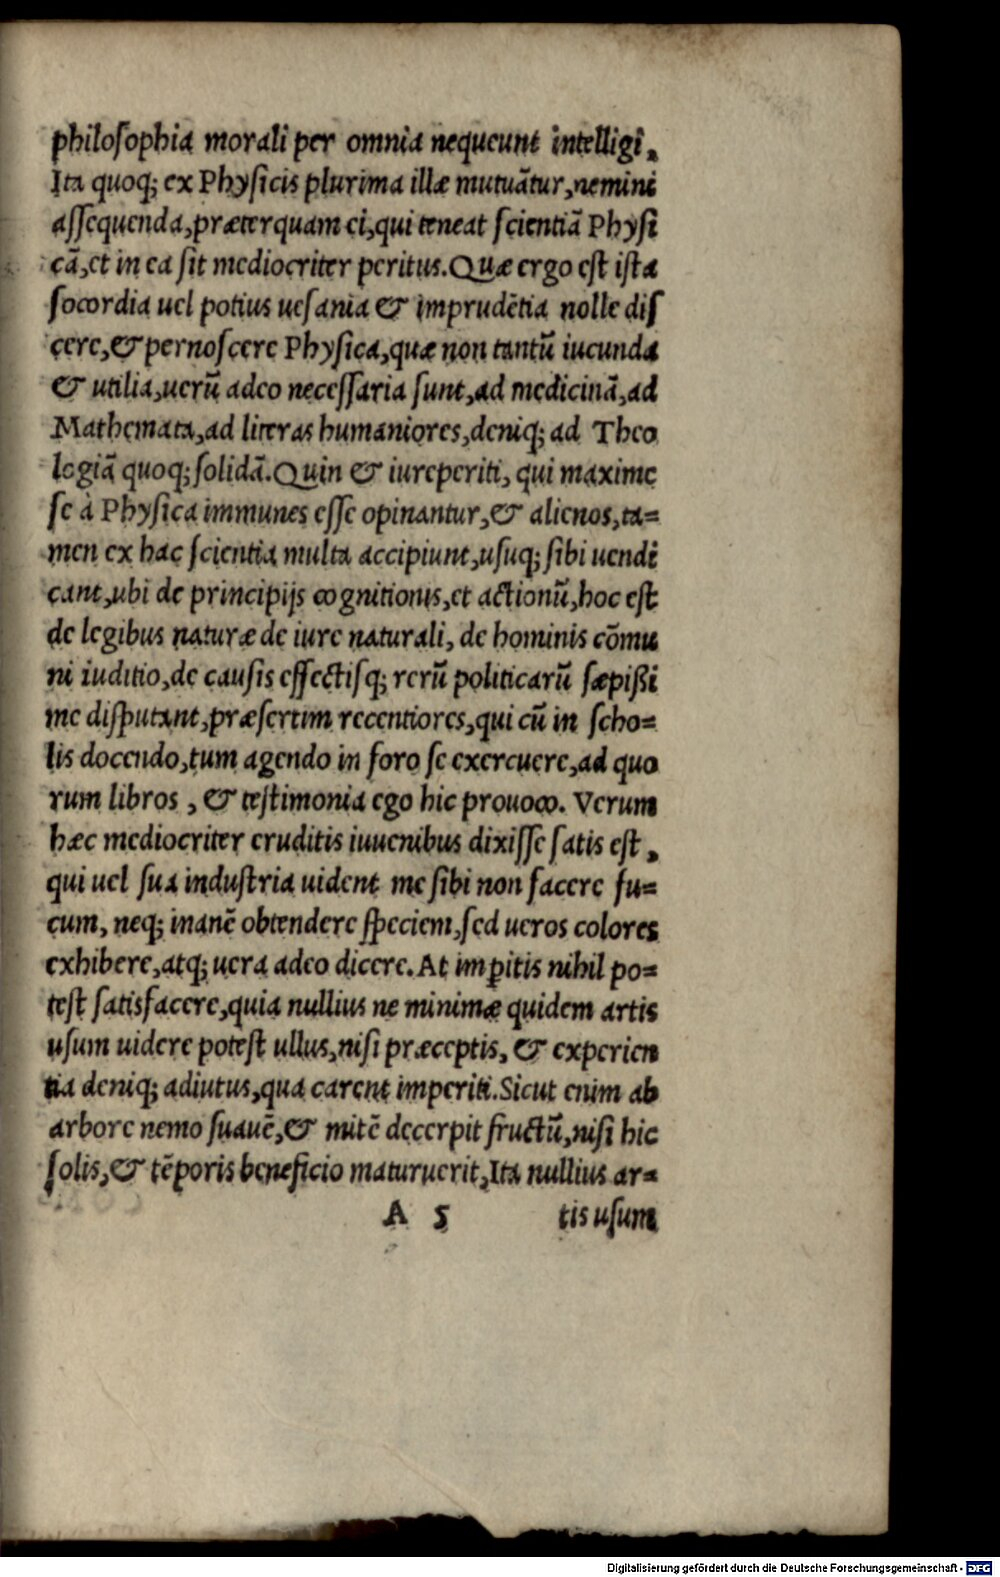 philosophia morali per omnia nequeunt intelligi.
Ita quoq; ex Physicis plurima illæ mutuãtur, nemini
assequenda, præterquam ei, qui teneat scientiã Physi
cã, et in ea sit mediocriter peritus. Quæ ergo est ista
socordia uel potius uesania & imprudẽtia nolle dis
cere, & pernoscere Physica, quæ non tantũ iucunda
& utilia, uerũ adeo necessaria sunt, ad medicinã, ad
Mathemata, ad literas humaniores, deniq; ad Theo
logiã quoq; solidã. Quin & iureperiti, qui maxime
se à Physica immunes esse opinantur, & alienos, ta=
men ex hac scientia multa accipiunt, usuq; sibi uendi
cant, ubi de principijs cognitionis, et actionũ, hoc est
de legibus naturæ de iure naturali, de hominis cõmu
ni iuditio, de causis effectisq; rerũ politicarũ sæpißi
me disputant, præsertim recentiores, qui cũ in scho=
lis docendo, tum agendo in foro se exercuere, ad quo
rum libros, & testimonia ego hic prouoco. Verum
hæc mediocriter eruditis iuuenibus dixisse satis est,
qui uel sua industria uident me sibi non facere fu=
cum, neq; inanẽ obtendere speciem, sed ueros colores
exhibere, atq; uera adeo dicere. At imꝑitis nihil po=
test satisfacere, quia nullius ne minimæ quidem artis
usum uidere potest ullus, nisi præceptis, & experien
tia deniq; adiutus, qua carent imperiti. Sicut enim ab
arbore nemo suauẽ, & mitẽ decerpit fructũ, nisi hic
solis, & tẽporis beneficio maturuerit, Ita nullius ar=
A 5 tis usum
Digitalisierung gefördert durch die Deutsche Forschungsgemeinschaft - DFG